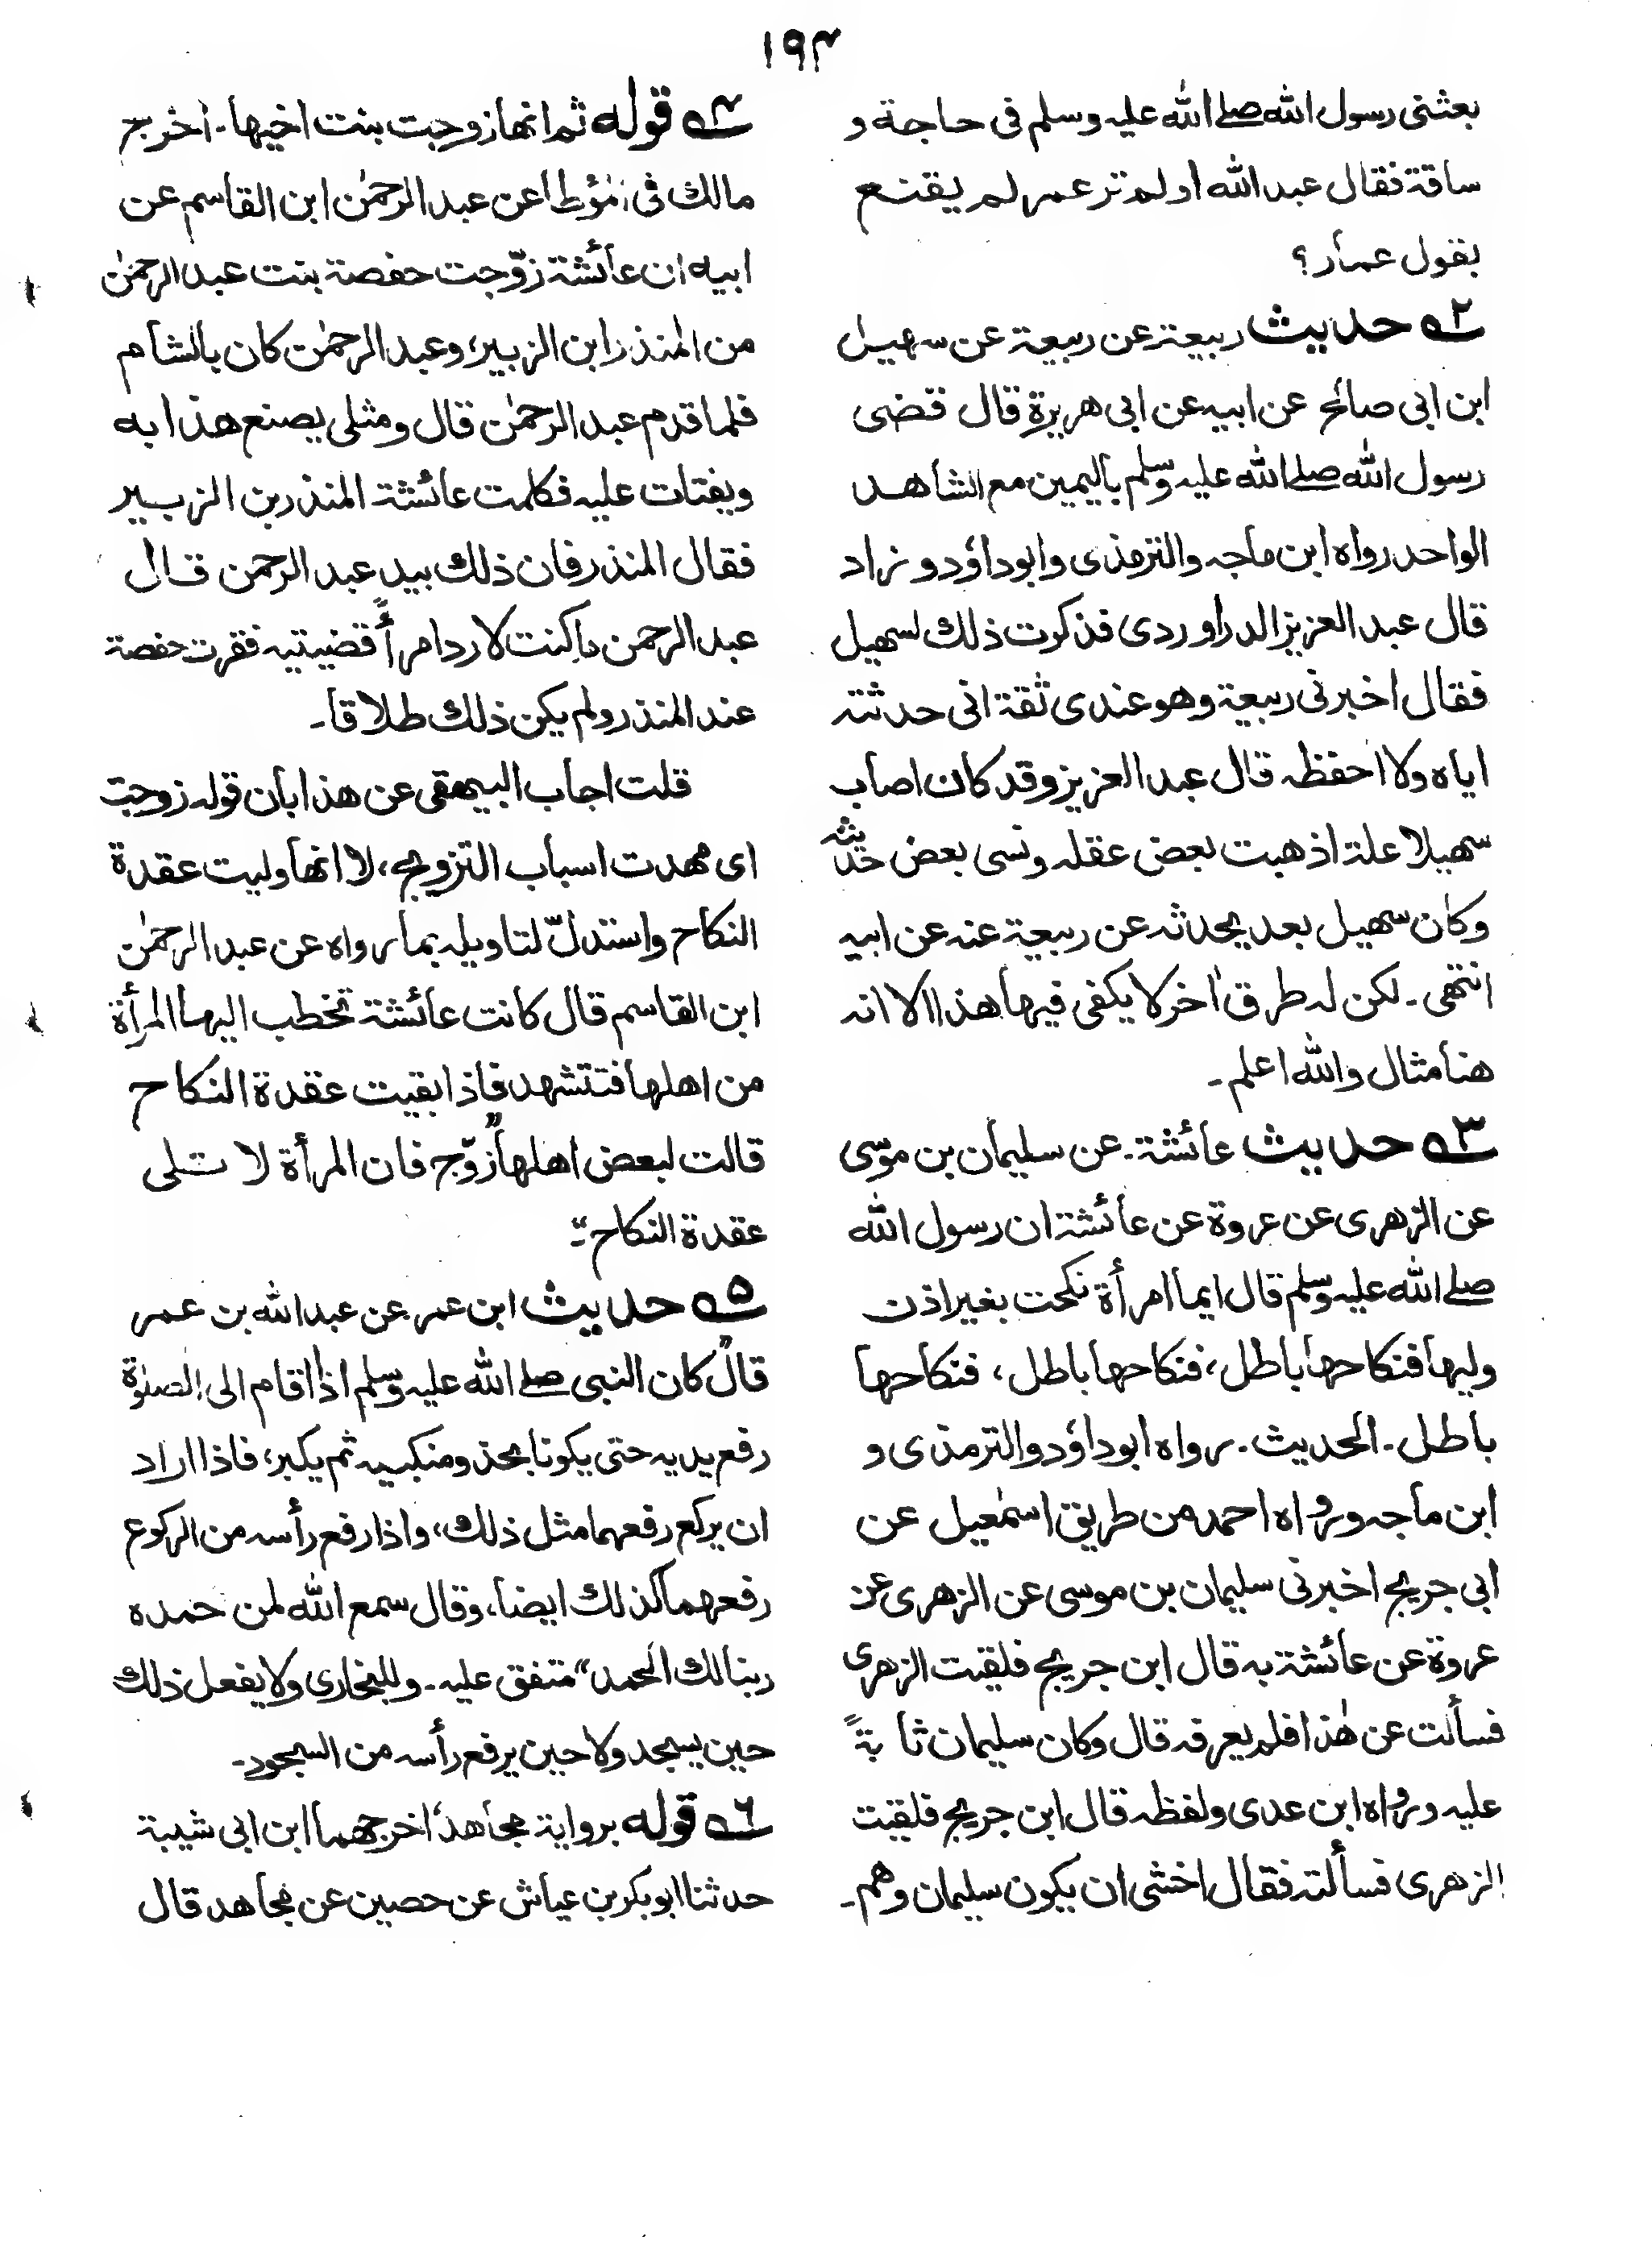 ۱۹۴
بعثنی رسول الله صلے الله علیه وسلم فی حاجة و
ساقة فقال عبد الله اولم تر عمر لم یقنع
بقول عمار؟
۲ه حدیث ربیعة عن ربیعة عن سهیل
ابن ابی صالح عن ابیه عن ابی هریرة قال قضی
رسول الله صلے الله علیه وسلم بالیمین مع الشاهد
الواحد رواه ابن ماجه والترمذی وابوداؤد و زاد
قال عبد العزیز الدراوردی فذکرت ذلك لسهیل
فقال اخبرنی ربیعة وهو عندی ثقة انی حدثته
ایاه ولا احفظه قال عبد العزیز وقد کان اصاب
سهیلا علة اذهبت بعض عقله ونسی بعض حدیثه
وکان سهیل بعد یحدثه عن ربیعة عنه عن ابیه
انتهی۔ لکن له طرق اٰخر لا یکفی فیها هذا الا انه
هنا مثال والله اعلم۔
۳ه حدیث عائشة۔ عن سلیمان بن موسی
عن الزهری عن عروة عن عائشة ان رسول الله
صلے الله علیه وسلم قال ایما امرأة نکحت بغیر اذن
ولیها فنکاحها باطل، فنکاحها باطل، فنکاحها
باطل۔ الحدیث۔ رواه ابوداؤد والترمذی و
ابن ماجه ورواه احمد من طریق اسمٰعیل عن
ابی جریج اخبرنی سلیمان بن موسی عن الزهری عن
عروة عن عائشة به قال ابن جریج فلقیت الزهری
فسألت عن هٰذا فلم یعرفه قال وکان سلیمان
علیه ورواه ابن عدی ولفظه قال ابن جریج فلقیت
الزهری فسألته فقال اخشی ان یکون سلیمان وهم۔
۴ه قوله ثم انها زوجت بنت اخیها۔ اخرج
مالك فی مؤطا عن عبد الرحمٰن ابن القاسم عن
ابیه ان عائشة زوّجت حفصة بنت عبد الرحمٰن
من المنذر ابن الزبیر، وعبد الرحمٰن کان بالشام
فلما قدم عبد الرحمٰن قال ومثلی یصنع هذا به
ویفتات علیه فکلمت عائشة المنذر بن الزبیر
فقال المنذر فان ذلك بید عبد الرحمن قال
عبد الرحمن ما کنت لارد امراً قضیتیه فقرت حفصة
عند المنذر ولم یکن ذلك طلاقا۔
قلت اجاب البیهقی عن هذا بان قوله زوجت
ای مهدت اسباب التزویج، لا انها ولیت عقدة
النکاح واستدلّ لتاویله بما رواه عن عبد الرحمٰن
ابن القاسم قال کانت عائشة تخطب الیها المرأة
من اهلها فتشهد فاذا بقیت عقدة النکاح
قالت لبعض اهلها "زوّج فان المرأة لا تلی
عقدة النکاح"۔
۵ه حدیث ابن عمر۔ عن عبد الله بن عمر
قال "کان النبی صلے الله علیه وسلم اذا قام الی الصلوٰة
رفع یدیه حتی یکونا بحذو منکبیه ثم یکبر، فاذا اراد
ان یرکع رفعهما مثل ذلك، واذا رفع رأسه من الرکوع
رفعهما کذلك ایضا، وقال سمع الله لمن حمده
ربنا لك الحمد" متفق علیه۔ وللبخاری ولا یفعل ذلك
حین یسجد ولا حین یرفع رأسه من السجود۔
۶ه قوله بروایة مجاهد، اخرجهما ابن ابی شیبة
حدثنا ابوبکر بن عیاش عن حصین عن مجاهد قال